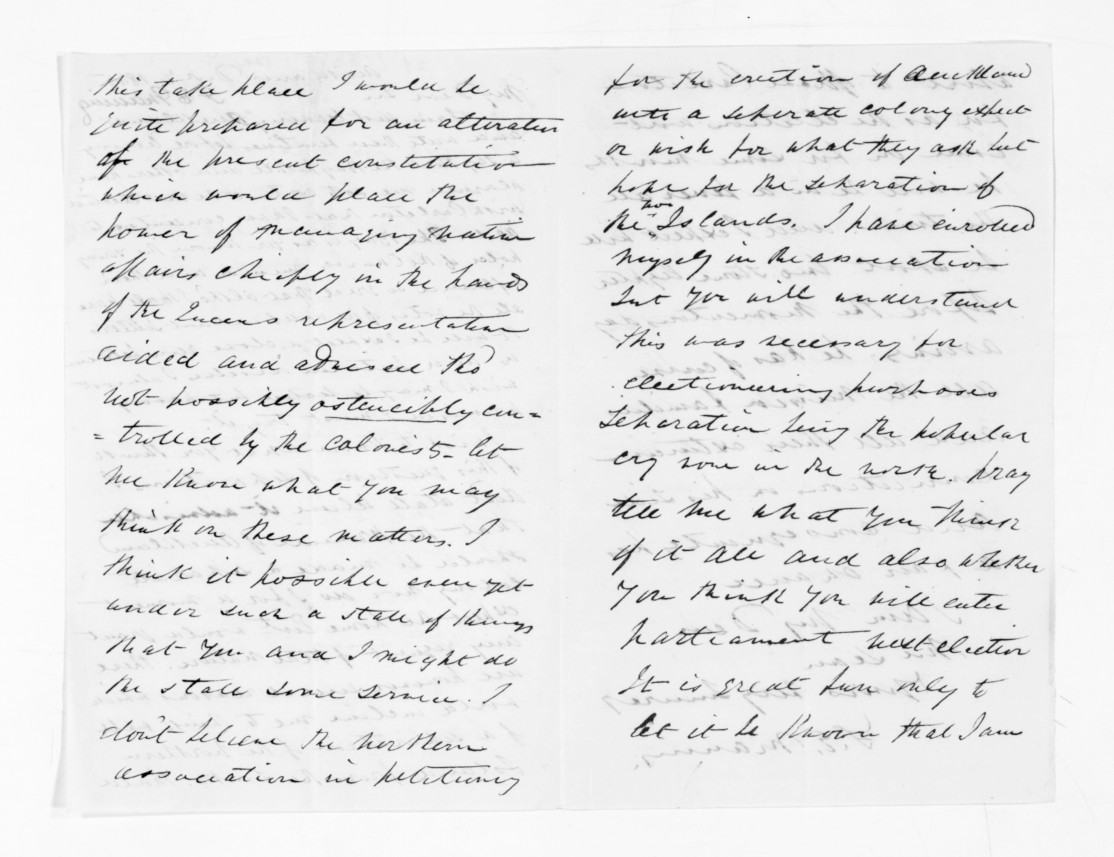 this take place I would be
quite prepared for an alteration
of the present constitution
which would place the
power of managing native
affairs chiefly in the hands
of the Queens representative
aided and advised tho
not possibly ostencibly con=
=trolled by the colonists - let
me know what you may
think on these matters. I
think it possible even yet
under such a state of things
that you and I might do
the state some service. I
don't believe the Northern
association in petitioning
for the erection of Auckland
into a seperate colony expect
or wish for what they ask but
hope for the separation of
the two Islands. I have enrolled
myself in the association
but you will understand
this was necessary for
electioneering purposes
separation being the popular
cry now in the north. pray
tell me what you think
of it all and also whether
you think you will enter
parliament next election
It is great fun only to
let it be known that I am